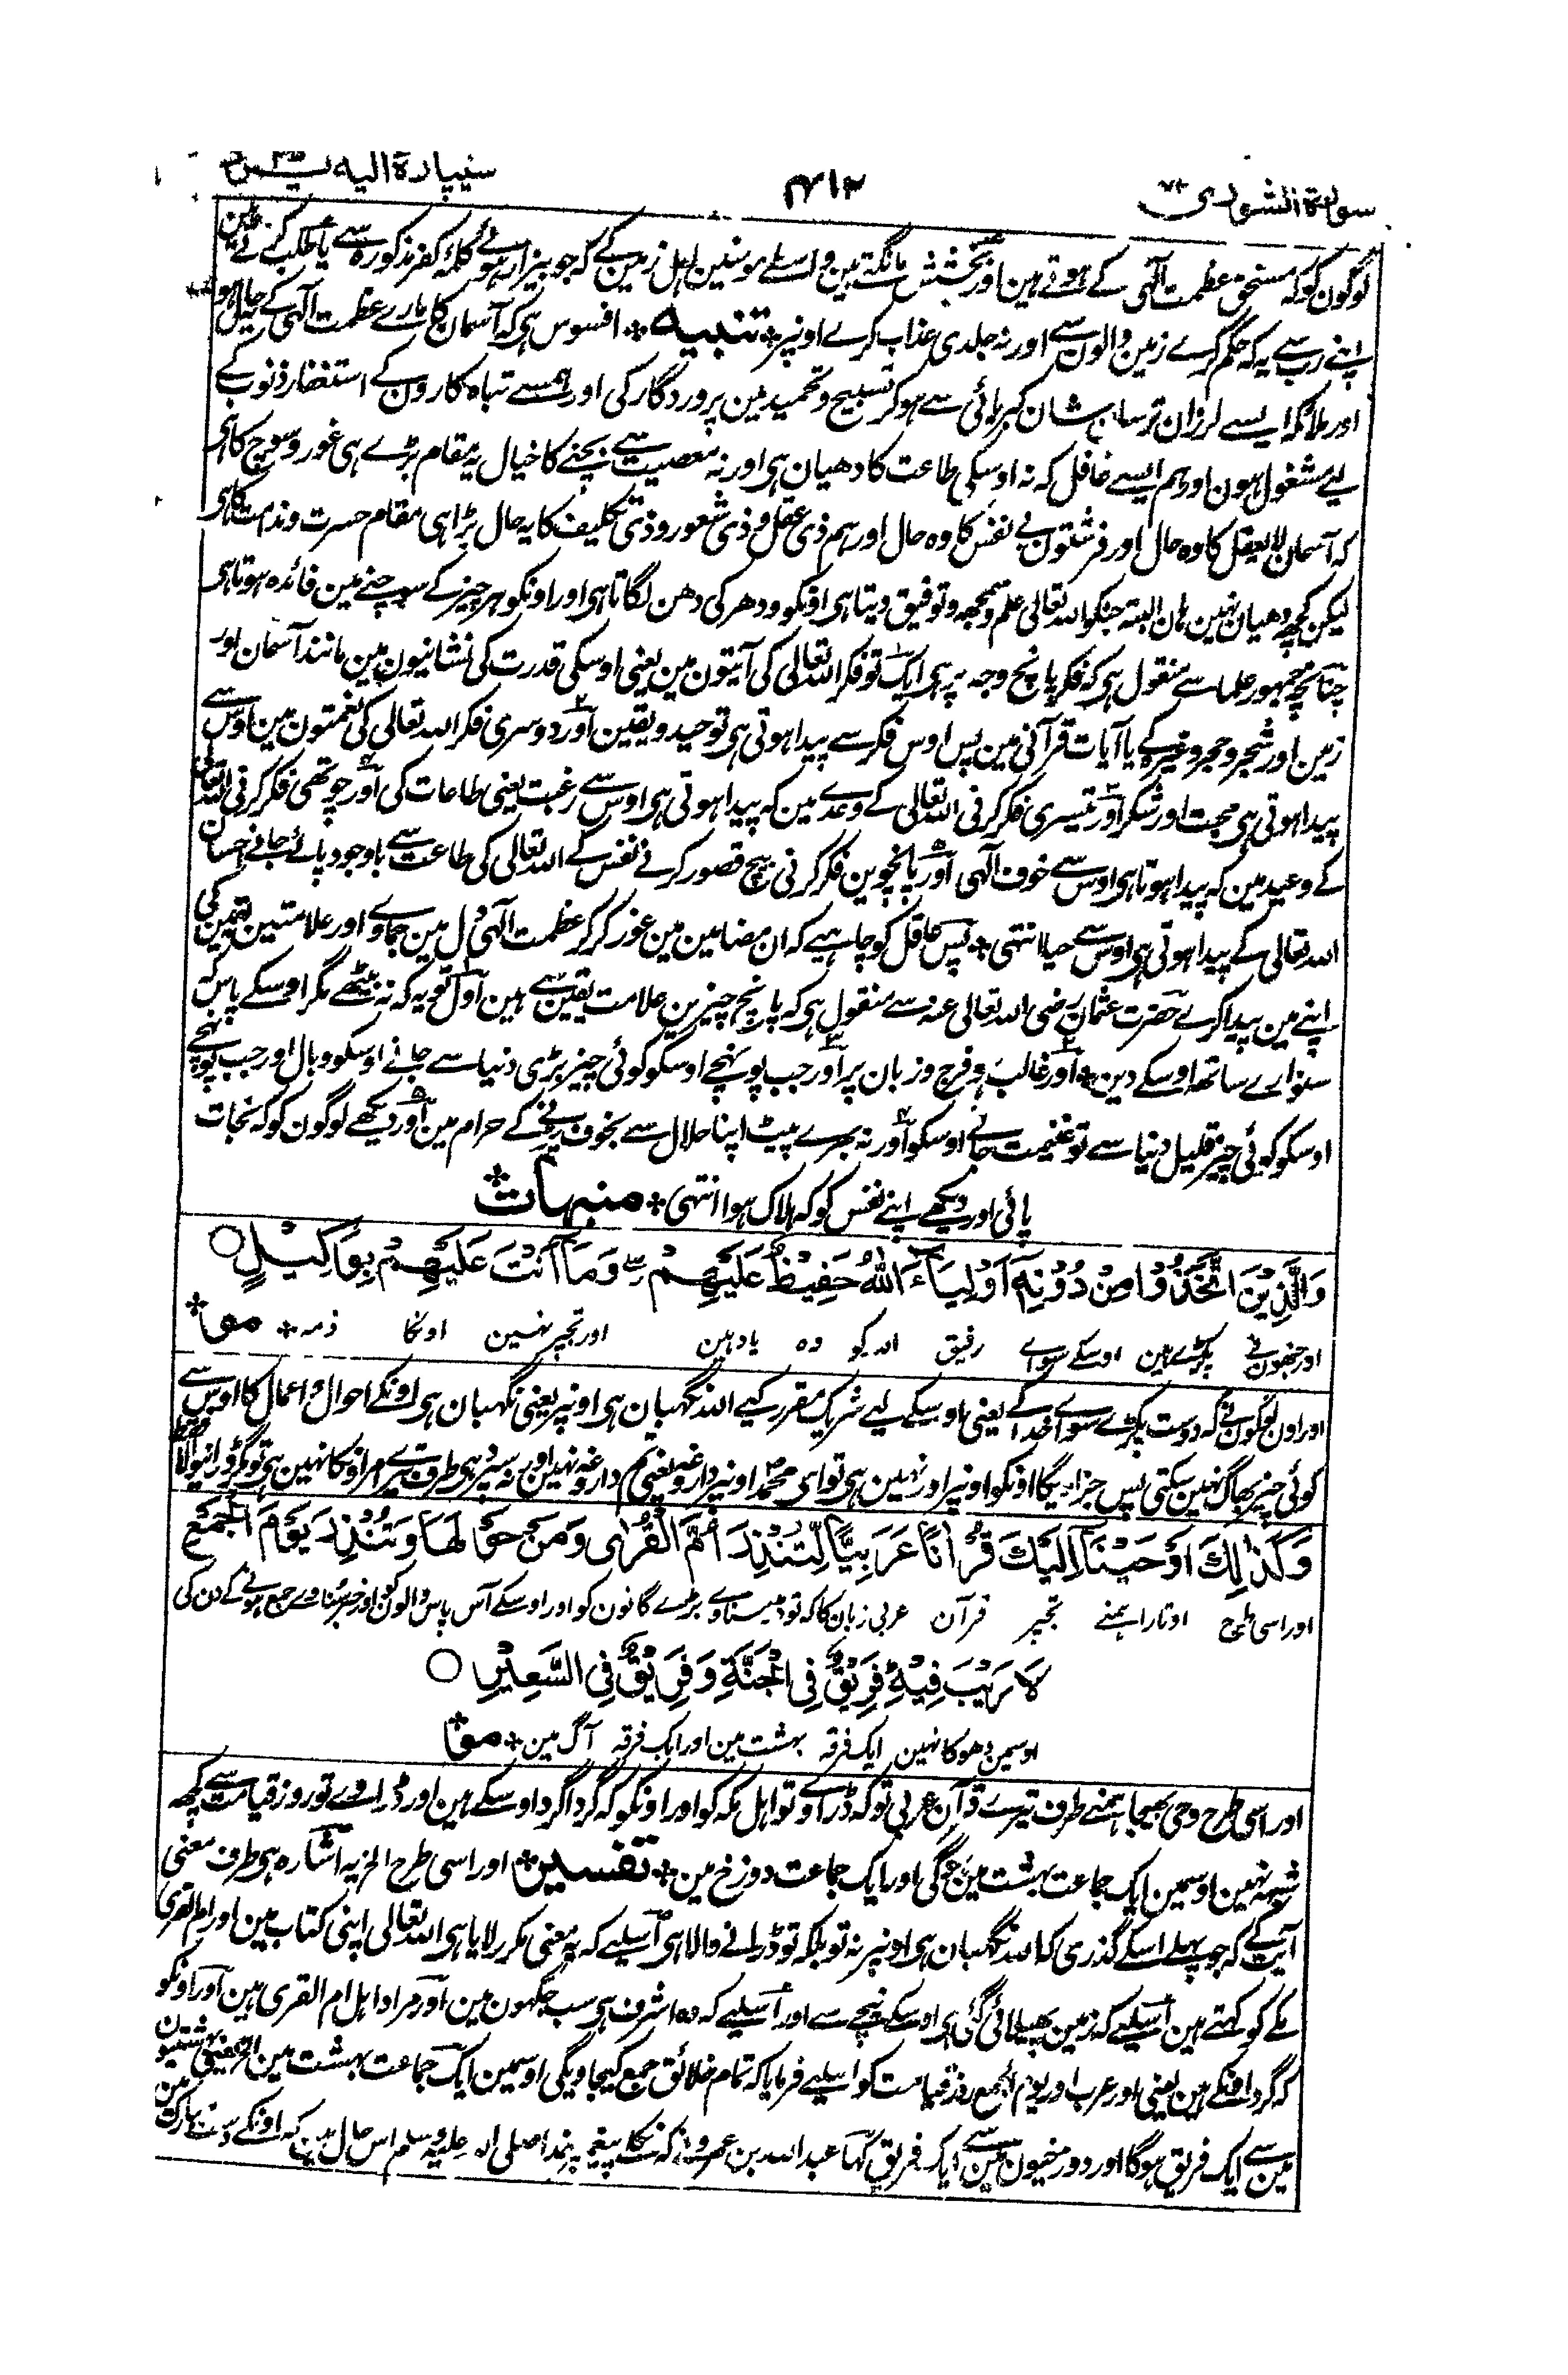 سورة الشوری ۴۲
۴۱۲
سیپارہ الیہ یرد ۲۵
لوگون کو کہ مستحق عظمت الٰہی کے ہوتے ہین اور بخشش مانگتے ہین واسطے مومنین اہل زمین کے کہ جو بیزار ہوئے کلمۂ کفر مذکورہ سے یا طلب کرتے ہین
اپنے رب سے یہ کہ حکم کرے زمین والون سے اور نہ جلدی عذاب کرے اونپر * تنبیہ * افسوس ہی کہ آسمان کا مارے عظمت الٰہی کے یہ حال ہو
اور ملائکہ ایسے لرزان ترسان شان کبریائی سے ہوکر تسبیح و تحمید مین پروردگار کی اور ہمسے تباہ کارون کے استغفار ذنوب کے
لیے مشغول ہون اور ہم ایسے غافل کہ نہ اوسکی طاعت کا دھیان ہی اور نہ معصیت سے بچنے کا خیال یہ مقام بڑے ہی غور و سوچ کا ہی
کہ آسمان لا یعقل کا وہ حال اور فرشتون بے نفس کا وہ حال اور ہم ذی عقل و ذی شعور و ذی تکلیف کا یہ حال بڑا ہی مقام حسرت و ندامت کا ہی
لیکن کچھ دھیان نہین ہان البتہ جنکو اللہ تعالی علم و سمجھ و توفیق دیتا ہی اونکو اودھر کی دھن لگاتا ہی اور اونکو ہر چیز کے سوچنے مین فائدہ ہوتا ہی
چنانچہ جمہور علما سے منقول ہی کہ فکر پانچ وجہ پر ہی ایک تو فکر اللہ تعالی کی آیتون مین یعنی اوسکی قدرت کی نشانیون مین مانند آسمان اور
زمین اور شجر و حجر وغیرہ کے یا آیات قرآنی مین پس اوس فکر سے پیدا ہوتی ہی توحید و یقین اور دوسری فکر اللہ تعالی کی نعمتون مین اوس سے
پیدا ہوتی ہی محبت اور شکر اور تیسری فکر کرنی اللہ تعالی کے وعدے مین کہ پیدا ہوتی ہی اوس سے رغبت یعنی طاعات کی اور چوتھی فکر کرنی اللہ تعالی
کے وعید مین کہ پیدا ہوتا ہی اوس سے خوف الٰہی اور پانچوین فکر کرنی بیچ قصور کرنے نفس کے اللہ تعالی کی طاعت سے باوجود پائے جانے احسان
اللہ تعالی کے پیدا ہوتی ہی اوس سے حیا انتہی * پس عاقل کو چاہیے کہ ان مضامین مین غور کر کر عظمت الٰہی دل مین جماوے اور علامتین یقین کی
اپنے مین پیدا کرے حضرت عثمان رضی اللہ تعالی عنہ سے منقول ہی کہ پانچ چیزین علامت یقین سے ہین اول تو یہ کہ نہ بیٹھے مگر اوسکے پاس کہ
سنوارے ساتھ اوسکے دین * اور غالب ہو فرج و زبان پر اور جب پونہچے اوسکو کوئی چیز بڑی دنیا سے جانے اوسکو وبال اور جب پونہچے
اوسکو کوئی چیز قلیل دنیا سے تو غنیمت جانے اوسکو اور نہ بھرے پیٹ اپنا حلال سے بخوف پڑنے کے حرام مین اور دیکھے لوگون کو کہ نجات
پائی اور دیکھے اپنے نفس کو کہ ہلاک ہوا انتہی * منبہات *
وَالَّذِيْنَ اتَّخَذُوْا مِنْ دُوْنِهٖٓ اَوْلِيَآءَ اللّٰهُ حَفِيْظٌ عَلَيْهِمْ وَمَآ اَنْتَ عَلَيْهِمْ بِوَكِيْلٍ ○
اور جنھون نے پکڑے ہین اوسکے سوائے رفیق اللہ کو وہ یاد ہین اور تجپر نہین اونکا ذمہ * مو *
اور اون لوگون نے کہ دوست پکڑے سوائے خدا کے یعنی اوسکے لیے شریک مقرر کیے اللہ نگہبان ہی اونپر یعنی نگہبان ہی اونکے احوال و اعمال کا اوس سے
کوئی چیز بھاگ نہین سکتی پس جزا دیگا اونکو اونپر اور نہین ہی تو ای محمد اونپر داروغہ یعنی تم داروغہ نہین اور نہ سپرد ہی طرف تیرے امر اونکا نہین ہی تو مگر ڈرانیوالا
وَكَذٰلِكَ اَوْحَيْنَآ اِلَيْكَ قُرْاٰنًا عَرَبِيًّا لِّتُنْذِرَ اُمَّ الْقُرٰى وَمَنْ حَوْلَهَا وَتُنْذِرَ يَوْمَ الْجَمْعِ
اور اسی طرح اوتارا ہمنے تجپر قرآن عربی زبان کا کہ تو ڈر سناوے بڑے گانون کو اور اوسکے آس پاس والون کو اور خبر سناوے جمع ہونے کے دن کی
لَا رَيْبَ فِيْهِ فَرِيْقٌ فِى الْجَنَّةِ وَفَرِيْقٌ فِى السَّعِيْرِ ○
اوسمین دھوکا نہین ایک فرقہ بہشت مین اور ایک فرقہ آگ مین * مو *
اور اسی طرح وحی بھیجا ہمنے طرف تیرے قرآن عربی تو کہ ڈراوے تو اہل مکہ کو اور اونکو کہ گردا گرد اوسکے ہین اور ڈراوے تو روز قیامت سے کچھ
شبہ نہین اوسمین ایک جماعت بہشت مین ہوگی اور ایک جماعت دوزخ مین * تفسیر * اور اسی طرح الخ یہ اشارہ ہی طرف معنی
آیت کے کہ جو پہلے اسکے گذری کہ اللہ نگہبان ہی اونپر نہ تو بلکہ تو ڈرانے والا ہی اسلیے کہ یہ معنی مکرر لایا ہی اللہ تعالی اپنی کتاب مین اور ام القری
مکے کو کہتے ہین اسلیے کہ زمین پھیلائی گئی ہی اوسکے نیچے سے اور اسلیے کہ وہ اشرف ہی سب جگہون مین اور مراد اہل ام القری ہین اور اونکو
کہ گرد اونکے ہین یعنی اور عرب اور یوم الجمع روز قیامت کو اسلیے فرمایا کہ تمام خلائق جمع کیجاویگی اوسمین ایک جماعت بہشت مین الخ یعنی بہشتیون
مین سے ایک فریق ہوگا اور دوزخیون مین سے ایک فریق کہا عبداللہ بن عمرو نے کہ نکلے پیغمبر خدا صلی اللہ علیہ وسلم اس حال مین کہ اونکے دست مبارک مین